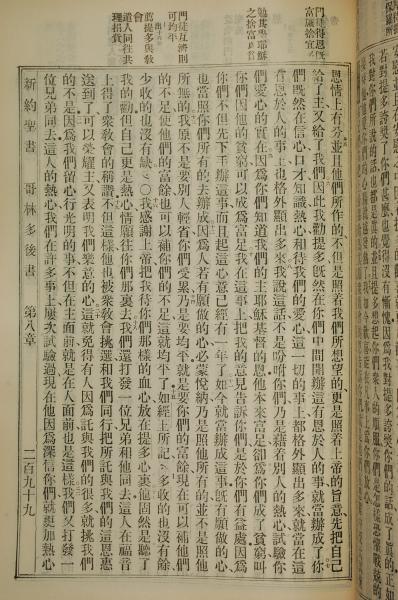 勉其學耶穌
之捨富爲貧
門徒互濟則
可均平
恩情上有分並且他們所作的不但是照着我們所想望的更是照着上帝的旨意先把自己
給了主又給了我們因此我勸提多旣然在你們中間開辦這有恩於人的事就當辦成了你
們旣然在信心口才知識熱心和待我們的愛心這一切的事上都格外顯出多來就當在這
有恩於人的事上也格外顯出多來我說這話不是吩咐你們乃是藉着別人的熱心試驗你
們愛心的實在因爲你們知道我們的主耶穌基督的恩他本來富足卻爲你們成了貧窮叫
你們因他的貧窮可以成爲富足我在這事上把我的意見告訴你們是於你們有益處因爲
你們不但先下手辦這事而且起這心意已經有一年了如今就當辦成這事旣有願做的心
也當照你們所有的去辦成因爲人若有願做的心必蒙悅納乃是照他所有的並不是照他
所無的我原不是要別人輕省你們受累乃是要均平就是要你們的富餘現在可以補他們
的不足使他們的富餘也可以補你們的不足這就均平了如經上所記多收的也沒有餘
少收的也沒有缺○我感謝上帝把我待你們那樣的血心放在提多心裏他固然是聽了
我的勸但自己更是熱心情願往你們那裏去我們還打發一位兄弟和他同去這人在福音
上得了衆敎會的稱讚不但這樣他也被衆敎會挑選和我們同行把所託與我們的這恩惠
送到了可以榮耀主又表明我們樂意的心這就免得有人因爲託與我們的很多就挑我們
的不是因爲我們留心行光明的事不但在主面前就是在人面前也是這樣我們又打發一
位兄弟同去這人的熱心我們在許多事上屢次試驗過現在他因爲深信你們就更加熱心
新約聖書　哥林多後書　第八章　二百九十九